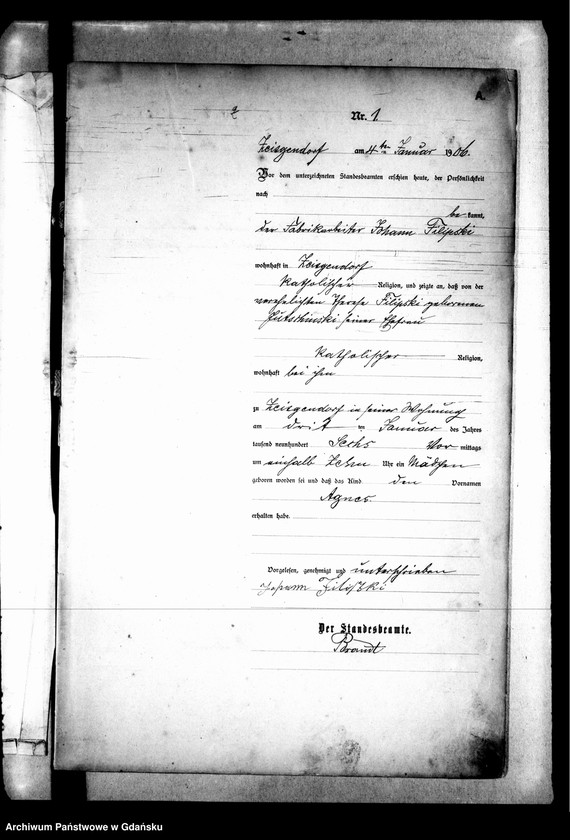 A.
2
Nr. 1
Zeisgendorf am 4ten Januar 1906.
Vor dem unterzeichneten Standesbeamten erschien heute, der Persönlichkeit
nach
be kannt,
der Fabrikarbeiter Johann Filipski
wohnhaft in Zeisgendorf
katholischer Religion, und zeigte an, daß von der
verehelichten Therese Filipski geborenen
seiner Ehefrau
katholischer Religion,
wohnhaft bei ihm
zu Zeisgendorf in seiner Wohnung
am Januar des Jahres
tausend neunhundert Sechs Vor mittags
um einhalb Zehn Uhr ein Mädchen
geboren worden sei und daß das Kind den Vornamen
Agnes
erhalten habe.
Vorgelesen, genehmigt und unterschrieben
Johann Filipski
Der Standesbeamte.
Brandt
Archiwum Państwowe w Gdańsku